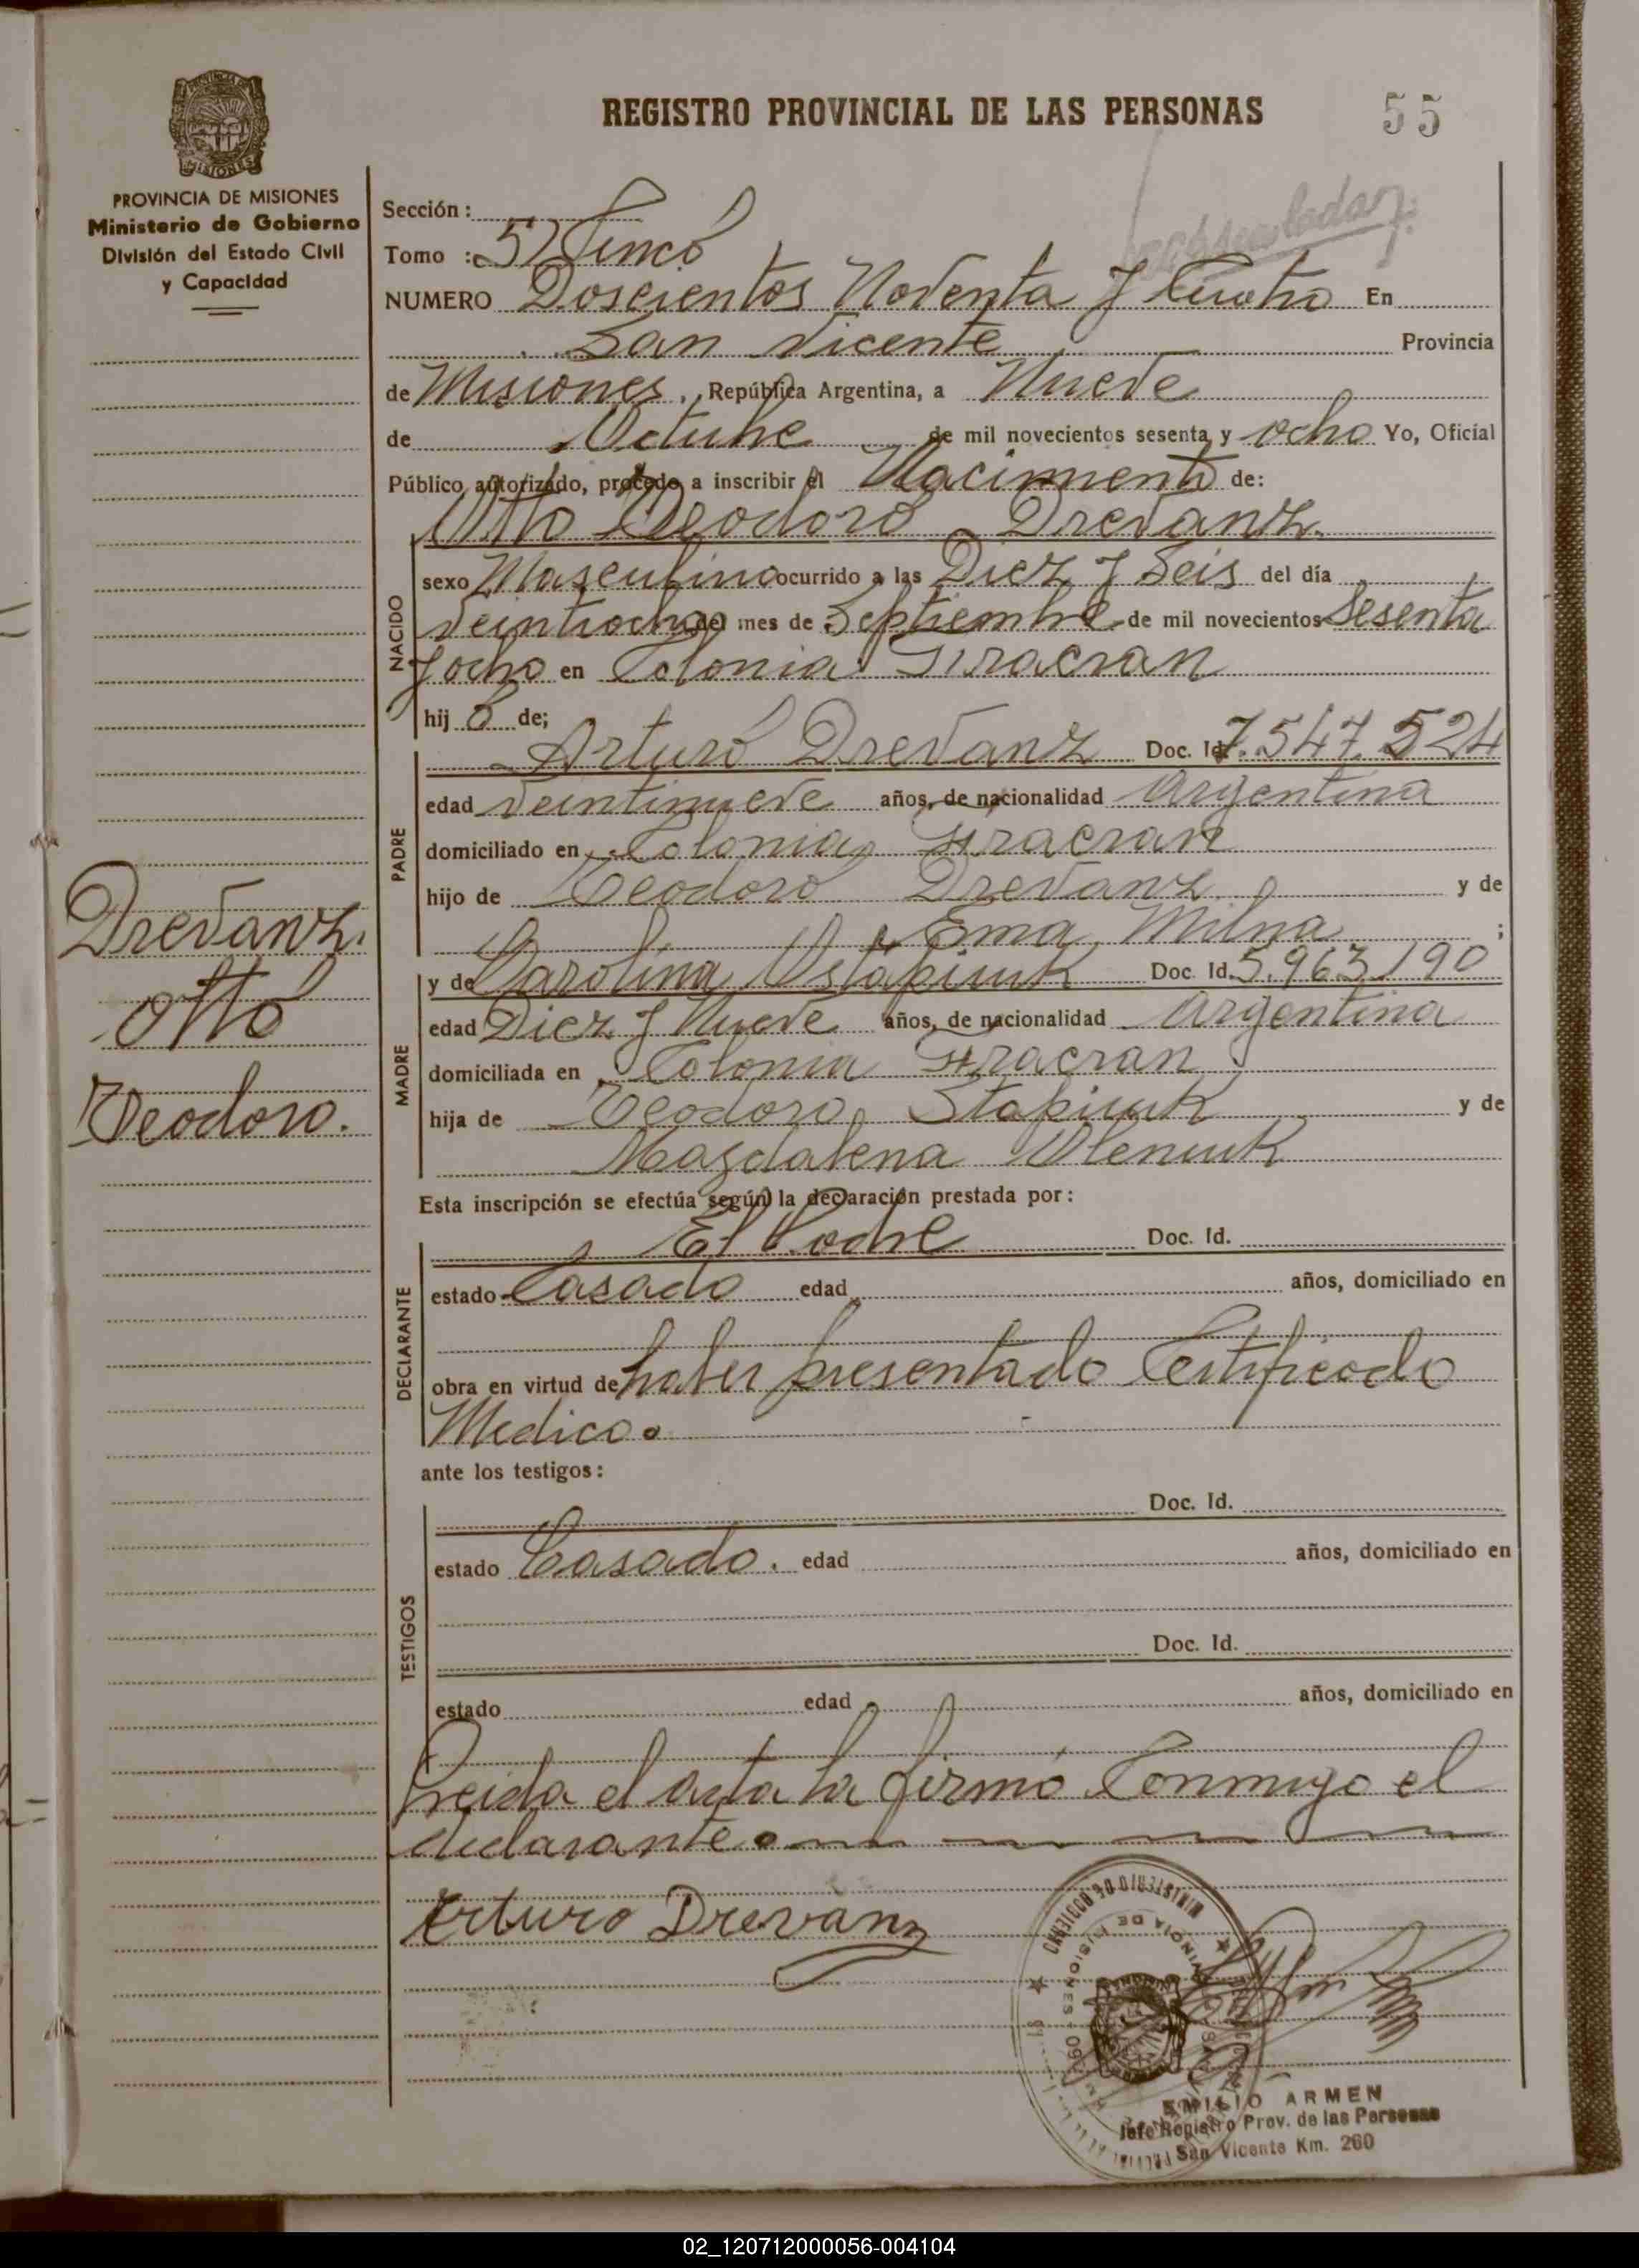 REGISTRO PROVINCIAL DE LAS PERSONAS
55
MISIONES
PROVINCIA DE MISIONES
Ministerio de Gobierno
División del Estado Civil
y Capacidad
Sección :
Tomo : 5) Cinco
NUMERO Doscientos Noventa y Cuatro En
San Vicente Provincia
de Misiones, República Argentina, a Nueve
de Octubre de mil novecientos sesenta y ocho Yo, Oficial
Público autorizado, procedo a inscribir el Nacimiento de:
Otto Teodoro Drevanz.
NACIDO
sexo Masculino ocurrido a las Diez y Seis del día
Veintiocho del mes de Septiembre de mil novecientos Sesenta
y ocho en Colonia Fracran
hij o de;
PADRE
Arturo Drevanz Doc. Id. 7.547.524
edad Veintinueve años, de nacionalidad Argentina
domiciliado en Colonia Fracran
hijo de Teodoro Drevanz y de
Ema Milna ;
Drevanz.
Otto
Teodoro.
MADRE
y de Carolina Ostapiuk Doc. Id. 5.963.190
edad Diez y Nueve años, de nacionalidad Argentina
domiciliada en Colonia Fracran
hija de Teodoro Stapiuk y de
Magdalena Oleniuk
Esta inscripción se efectúa según la declaración prestada por :
DECLARANTE
El Padre Doc. Id.
estado Casado edad años, domiciliado en
obra en virtud de haber presentado Certificado
Medico.
ante los testigos :
TESTIGOS
Doc. Id.
estado Casado. edad años, domiciliado en
Doc. Id.
estado edad años, domiciliado en
Leida el acta la firmó Conmigo el
declarante.
Arturo Drevanz
MINISTERIO DE GOBIERNO
EMILIO ARMEN
Jefe Registro Prov. de las Personas
San Vicente Km. 260
02_120712000056-004104